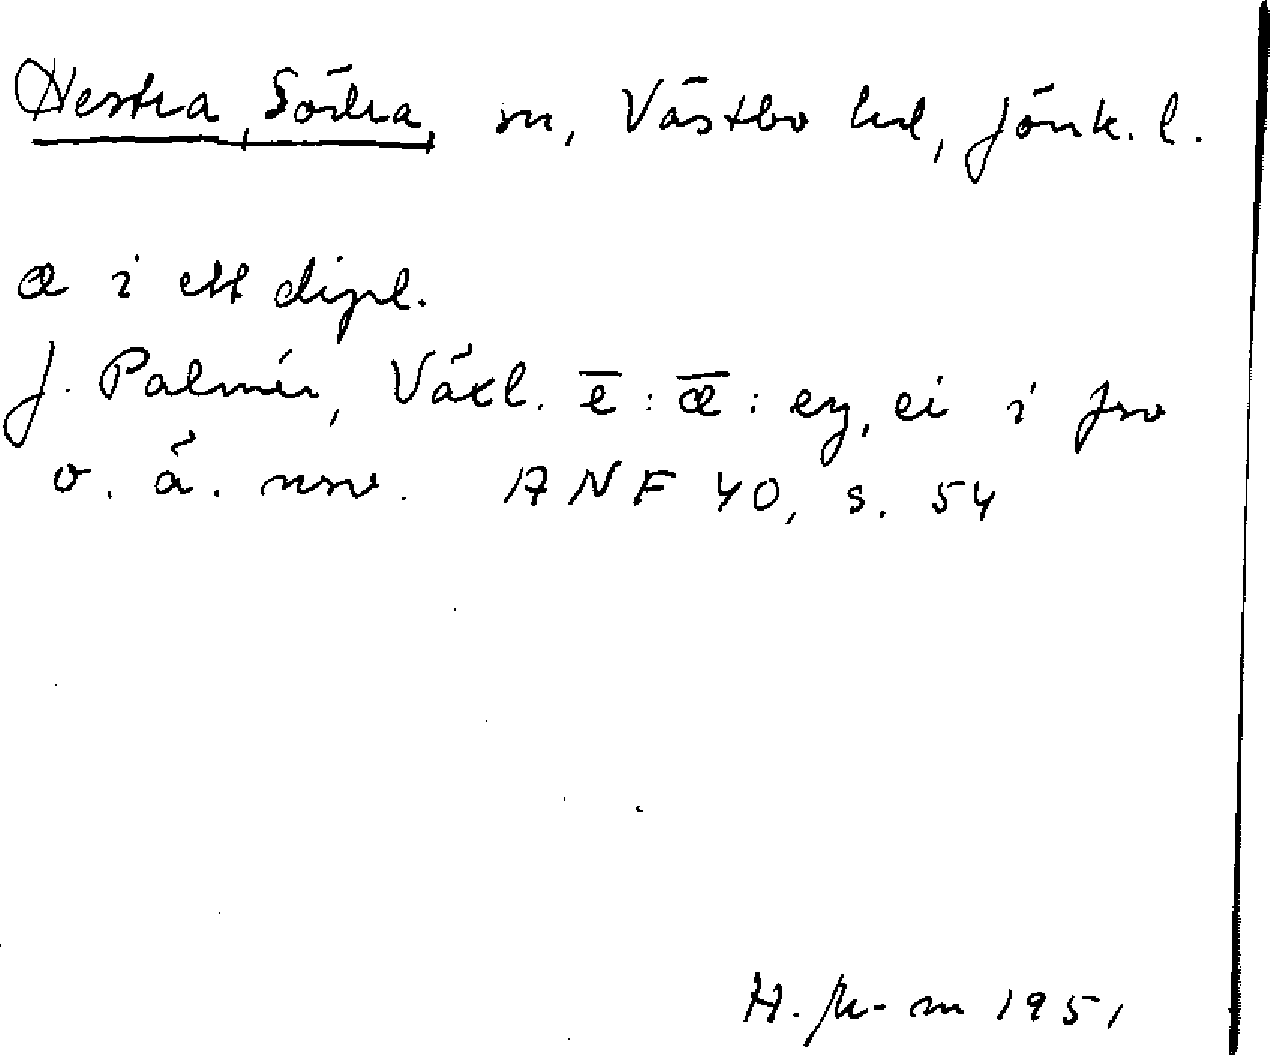 Hestra, Södra, sn, Västbo hd, Jönk. l.
æ i ett dipl.
J. Palmér, Växl. ē : ǣ : ey, ei i fsv
o. ä. nsv. ANF 40, s. 54
H. 1951